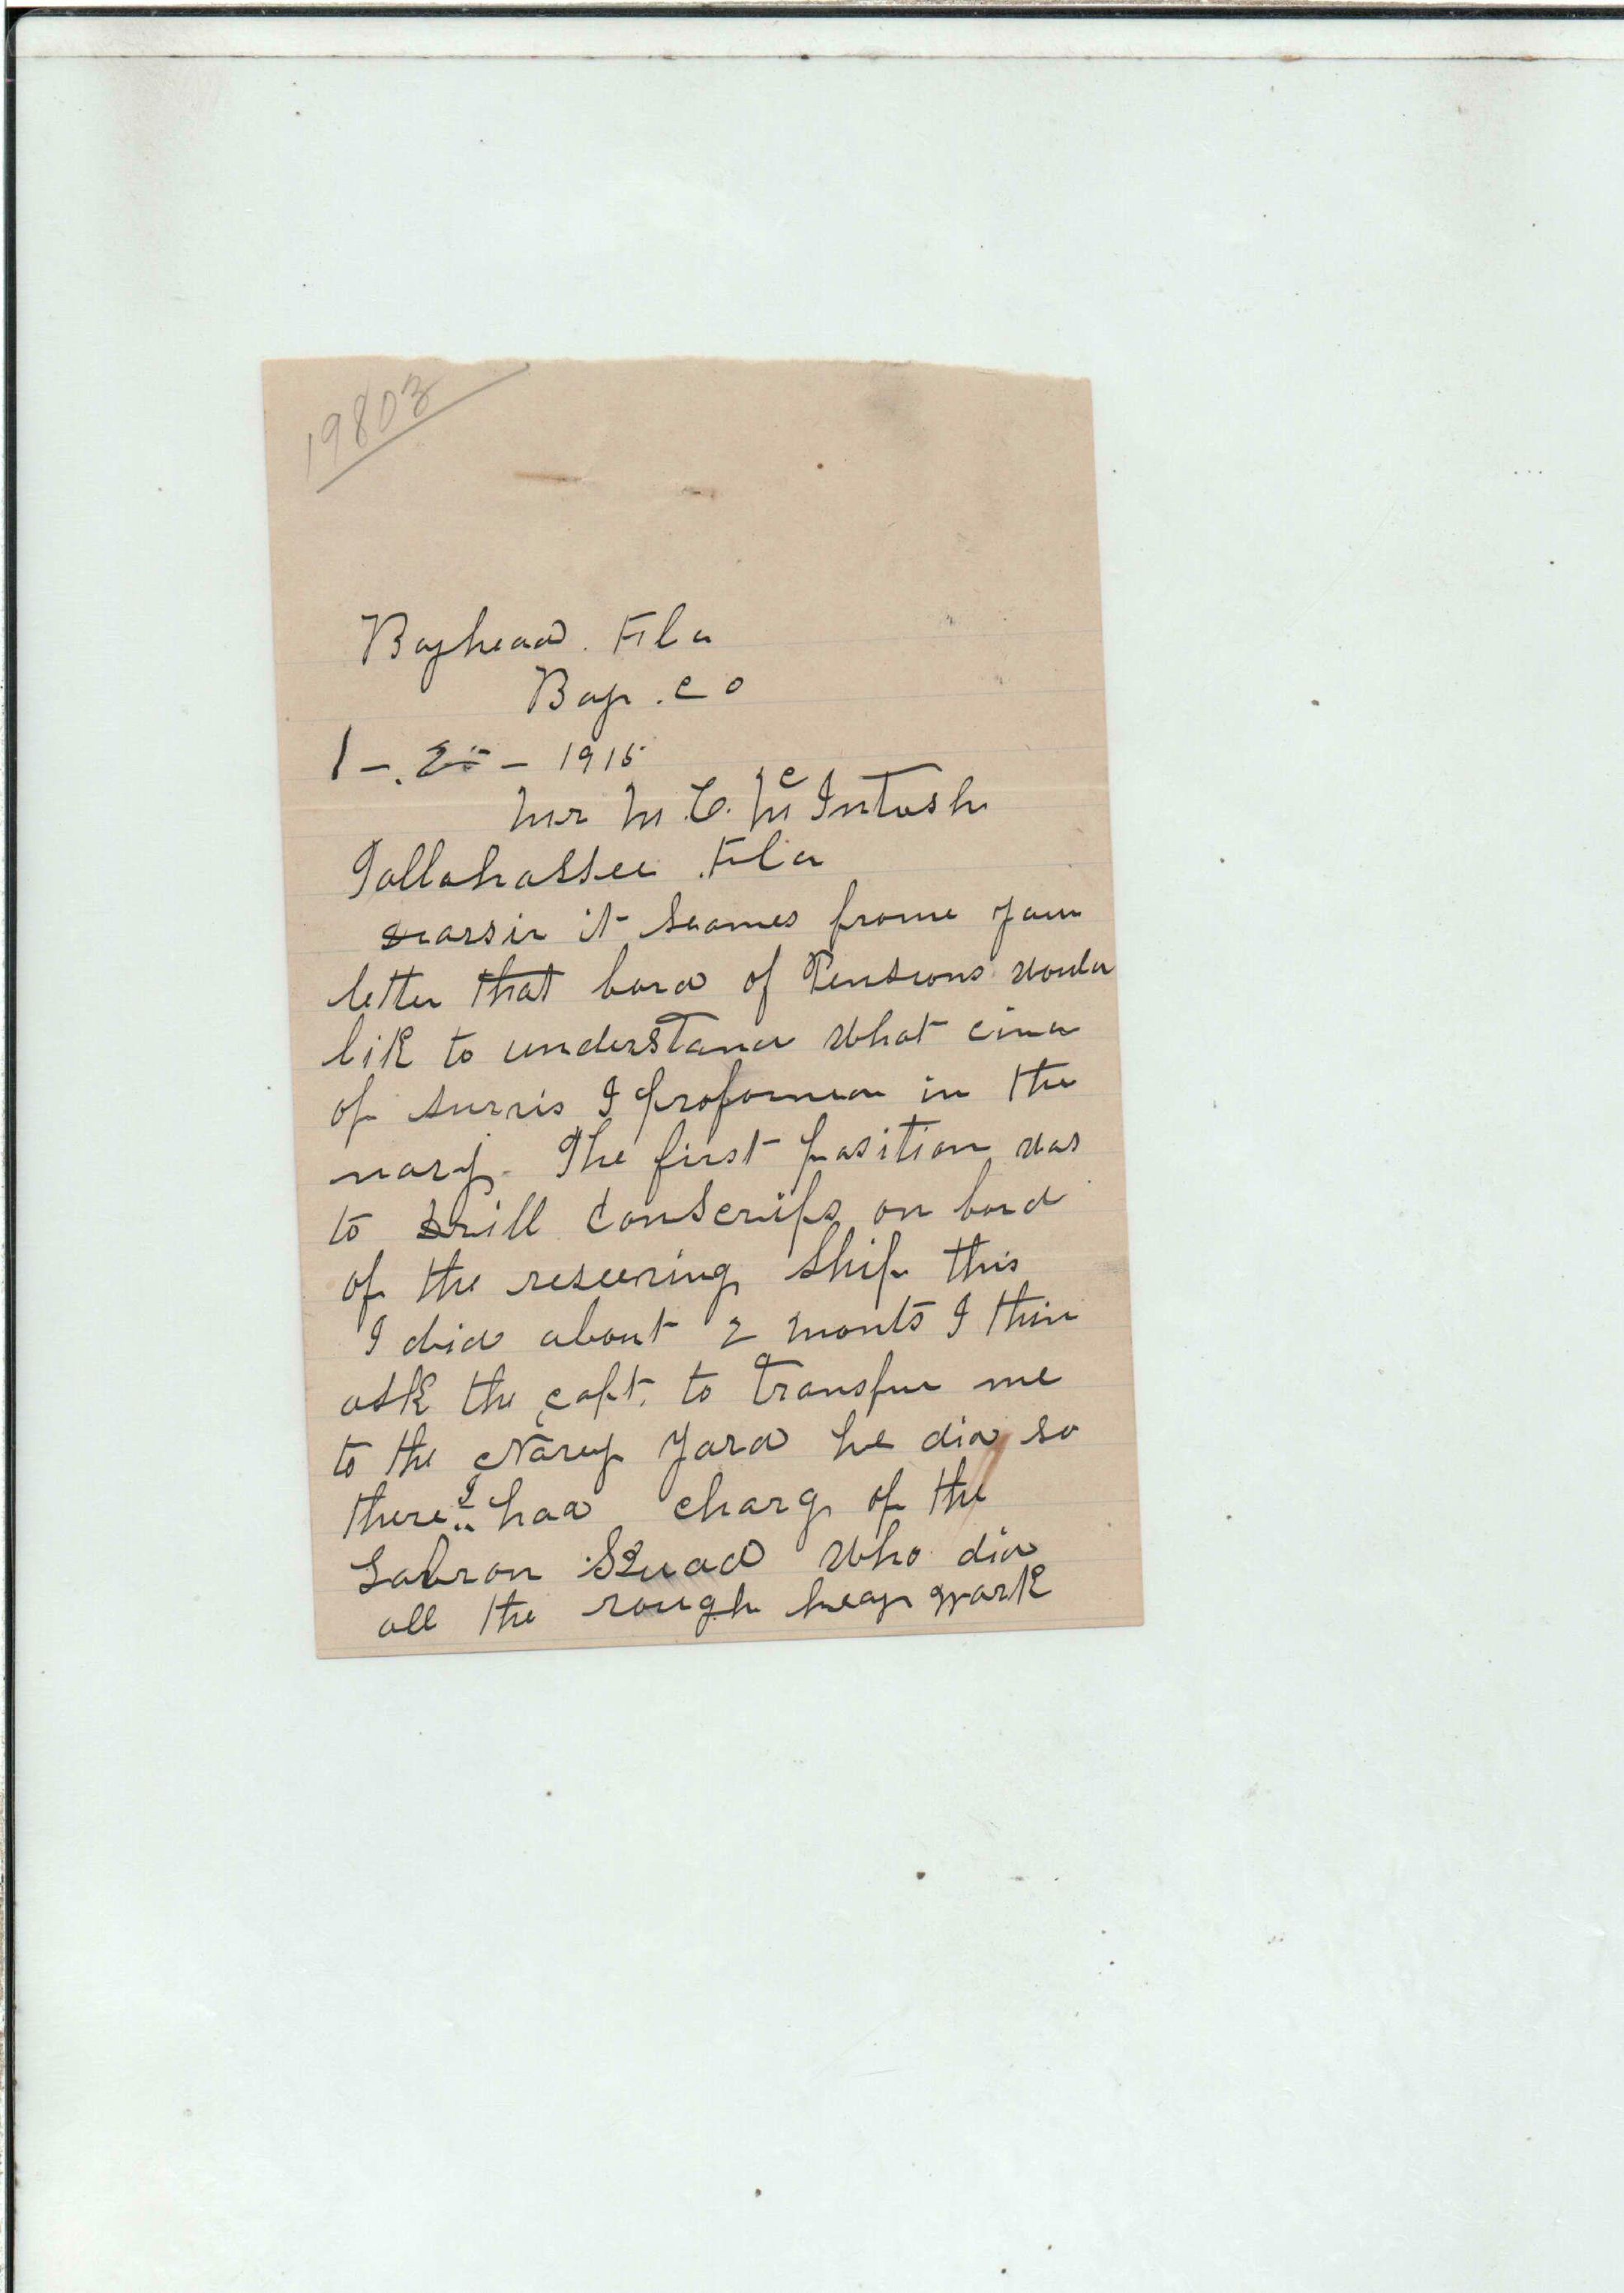 19803
Bayhead. Fla
Bay. Co
1 - 25 - 1915
Mr M. C. McIntosh
Tallahassee. Fla
dearsir it seames frome your
letter that bord of Pensions would
lik to understand what cind
of survis I proformed in the
navy. The first position was
to Drill Conscrips on bord
of the reseeving ship this
I did about 2 monts I thin
ask the capt. to Transfur me
to the Navey Yard he did so
there I had charg of the
Squad who did
all the rough heay work